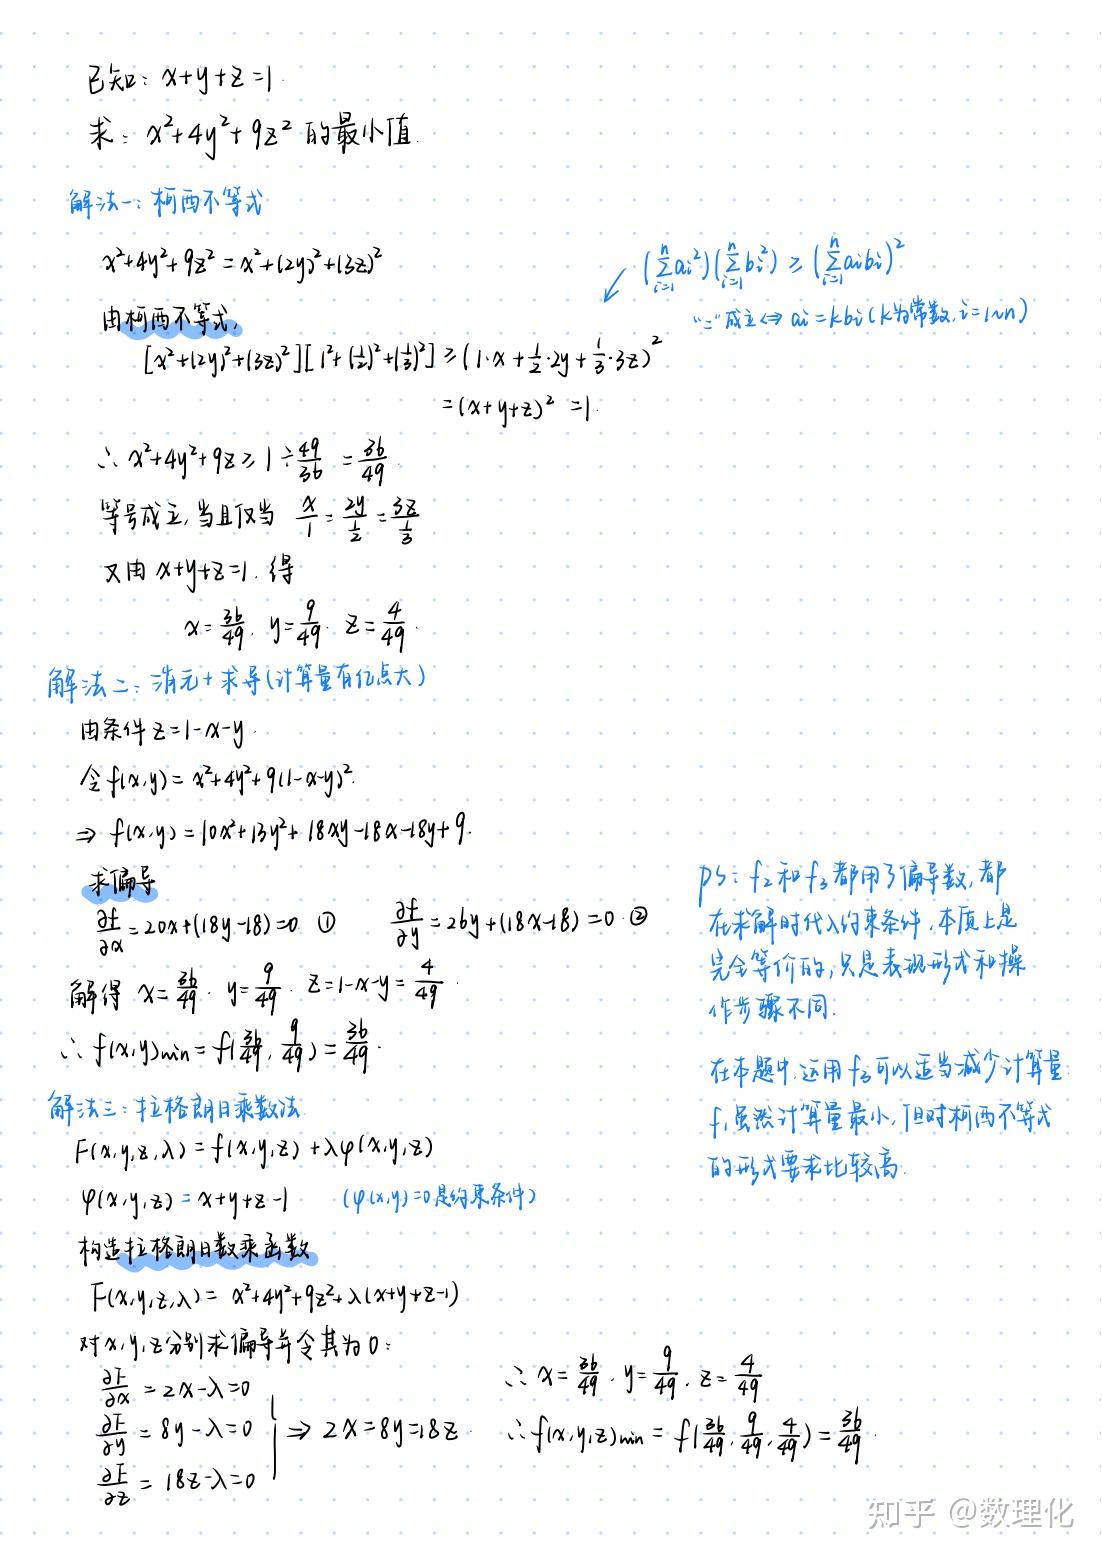 已知: x+y+z=1.
求: x²+4y²+9z² 的最小值.
解法一: 柯西不等式
x²+4y²+9z² = x²+(2y)²+(3z)²
(∑_{i=1}^{n} ai²)(∑_{i=1}^{n} bi²) ≥ (∑_{i=1}^{n} aibi)²
"="成立⇔ ai=kbi (k为常数, i=1~n)
由柯西不等式,
[x²+(2y)²+(3z)²][1²+(1/2)²+(1/3)²] ≥ (1·x+1/2·2y+1/3·3z)²
=(x+y+z)² =1.
∴ x²+4y²+9z ≥ 1÷49/36 = 36/49
等号成立, 当且仅当 x/1 = 2y/(1/2) = 3z/(1/3)
又由 x+y+z=1. 得
x=36/49. y=9/49. z=4/49.
解法二: 消元+求导(计算量有亿点大)
由条件 z=1-x-y.
令 f(x,y)= x²+4y²+9(1-x-y)².
⇒ f(x,y)=10x²+13y²+18xy-18x-18y+9.
求偏导
∂f/∂x=20x+(18y-18)=0 ① ∂f/∂y=26y+(18x-18)=0 ②
解得 x=36/49. y=9/49. z=1-x-y=4/49.
∴ f(x,y)min=f(36/49, 9/49)=36/49.
ps: f₂和f₃都用了偏导数, 都
在求解时代入约束条件, 本质上是
完全等价的, 只是表现形式和操
作步骤不同.
在本题中, 运用f₃可以适当减少计算量
f₁虽然计算量最小, 但对柯西不等式
的形式要求比较高.
解法三: 拉格朗日乘数法
F(x,y,z,λ)=f(x,y,z)+λφ(x,y,z)
φ(x,y,z)=x+y+z-1 (φ(x,y)=0是约束条件)
构造拉格朗日数乘函数
F(x,y,z,λ)= x²+4y²+9z²+λ(x+y+z-1)
对x,y,z分别求偏导并令其为0:
∂F/∂x = 2x-λ=0
∂F/∂y = 8y-λ=0 ⇒ 2x=8y=18z
∂F/∂z = 18z-λ=0
∴ x=36/49. y=9/49. z=4/49
∴ f(x,y,z)min = f(36/49, 9/49, 4/49)=36/49.
知乎 @数理化